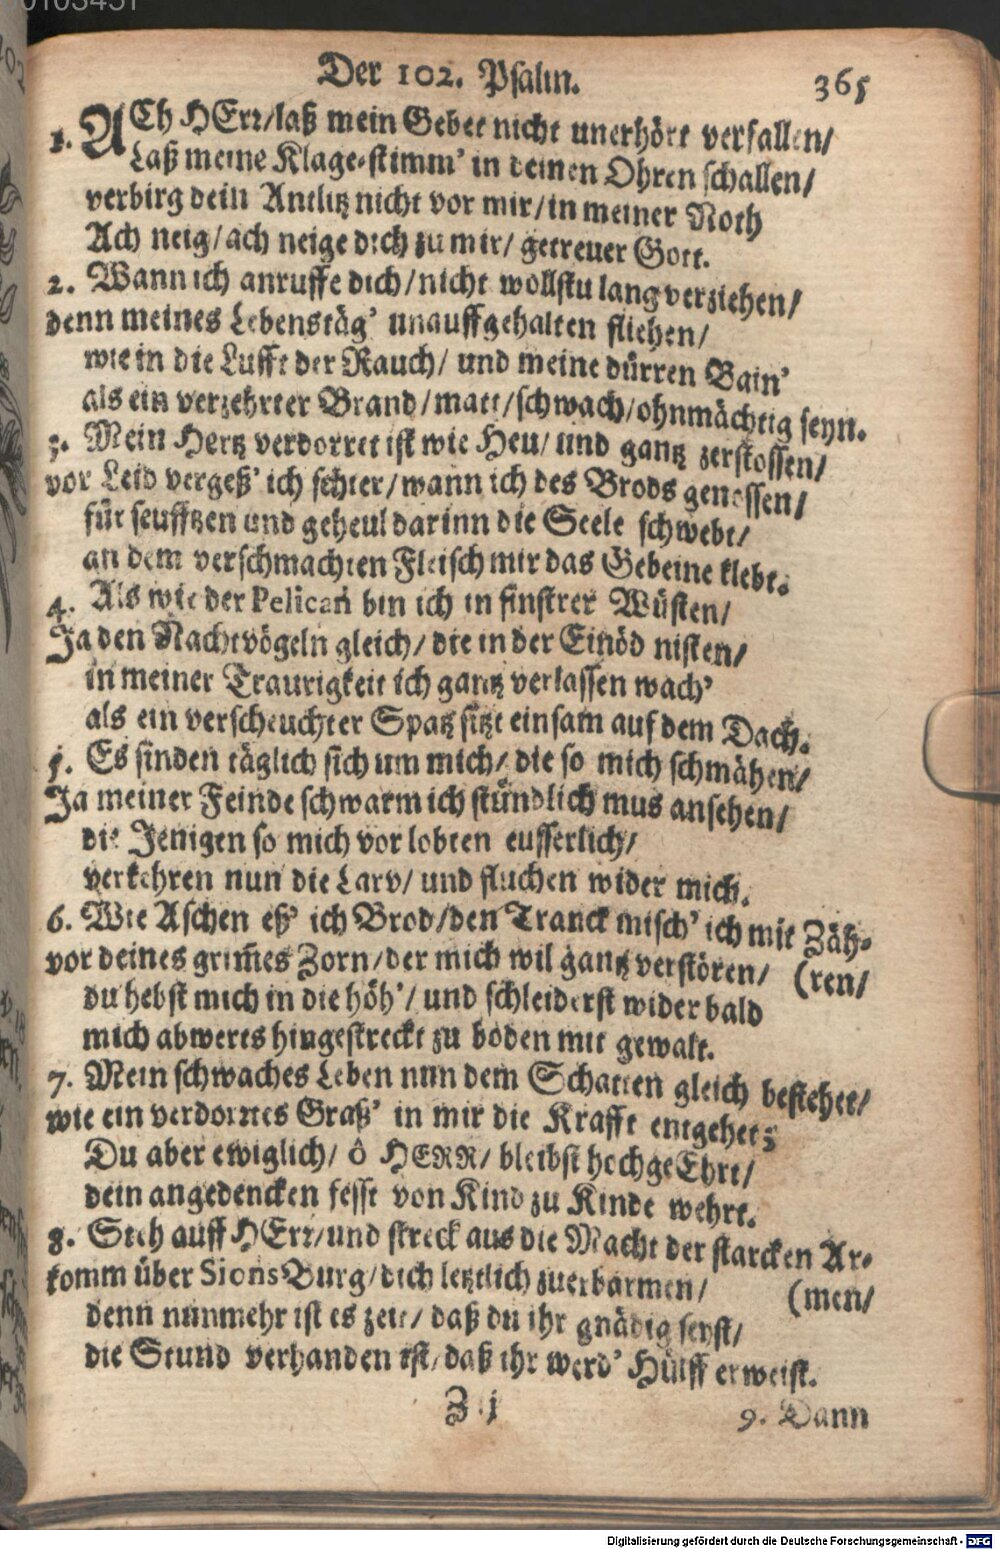 Der 102. Psalm. 365
1. ACh HErr/laß mein Gebet nicht unerhört verfallen/
Laß meine Klage-stimm’ in deinen Ohren schallen/
verbirg dein Antlitz nicht vor mir/in meiner Noth
Ach neig/ach neige dich zu mir/ getreuer Gott.
2. Wann ich anruffe dich/nicht wollstu lang verziehen/
denn meines Lebenstäg’ unauffgehalten fliehen/
wie in die Lufft der Rauch/ und meine dürren Bain’
als ein verzehrter Brand/matt/schwach/ohnmächtig seyn.
3. Mein Hertz verdorret ist wie Heu/ und gantz zerstossen/
vor Leid vergeß’ ich schier/wann ich des Brods genossen/
für seufftzen und geheul darinn die Seele schwebt/
an dem verschmachten Fleisch mir das Gebeine klebt.
4. Als wie der Pelican bin ich in finstrer Wüsten/
Ja den Nachtvögeln gleich/ die in der Einöd nisten/
in meiner Traurigkeit ich gantz verlassen wach’
als ein verscheuchter Spatz sitzt einsam auf dem Dach.
5. Es finden täglich sich um mich/ die so mich schmähen/
Ja meiner Feinde schwarm ich stündlich mus ansehen/
die Jenigen so mich vor lobten eusserlich/
verkehren nun die Larv/ und fluchen wider mich.
6. Wie Aschen eß’ ich Brod/den Tranck misch’ ich mit Zäh-
vor deines grim̄es Zorn/der mich wil gantz verstören/ (ren/
du hebst mich in die höh’/ und schleiderst wider bald
mich abwerts hingestreckt zu boden mit gewalt.
7. Mein schwaches Leben nun dem Schatten gleich bestehet/
wie ein verdorrtes Graß’ in mir die Krafft entgehet;
Du aber ewiglich/ ô HERR/ bleibst hochgeEhrt/
dein angedencken fesst von Kind zu Kinde wehrt.
8. Steh auff HErr/und streck aus die Macht der starcken Ar-
komm über Sions Burg/dich letztlich zuerbarmen/ (men/
denn nunmehr ist es zeit/ daß du ihr gnädig seyst/
die Stund verhanden ist/daß ihr werd’ Hülff erweist.
Z j 9. Dann
Digitalisierung gefördert durch die Deutsche Forschungsgemeinschaft - DFG